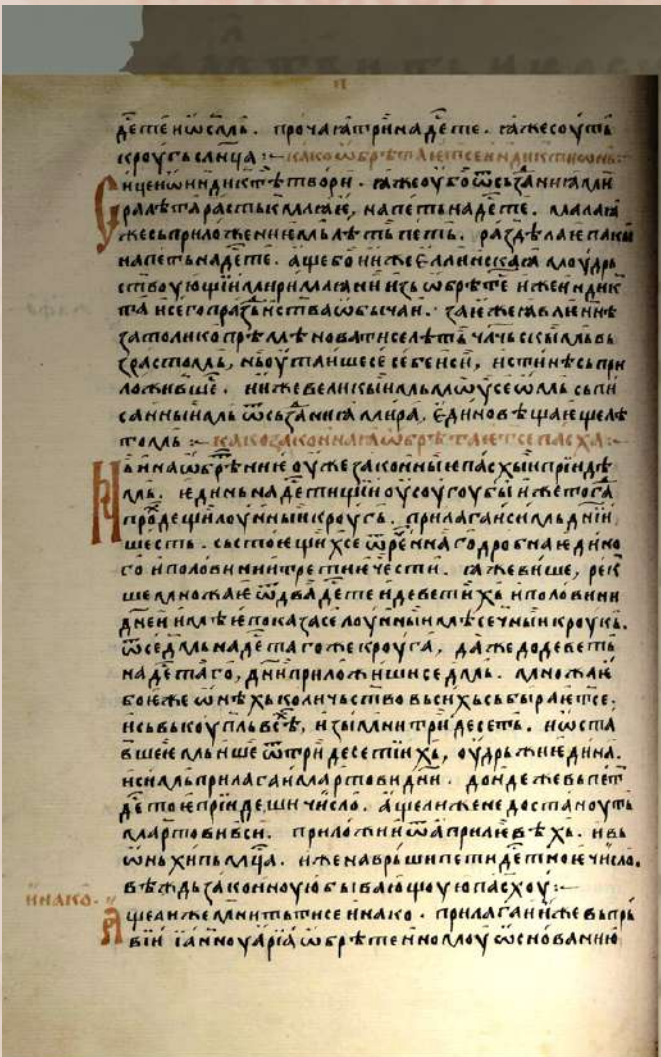 де́сте и ѡ҆смь. прочаꙗ три на де́сте. ꙗже соуть
кроугь сл҃нца :~ како ѡбрѣтаютсе индиктиѡнь :~
Сице ни ѡ индиктѣ твори. ꙗже оубо ѿ сьзданиꙗ ми
ра лѣта растькмлꙗи, на петь на де́сте. малаꙗ
же сь приложениемь лѣть петь. раздѣлꙗе пакы
на петь на де́сте. аще бо ниже еллинскаꙗ моудрь
ствоующїим римлꙗнинзь ѡбрѣте́ иже индик
та и сего празньства ѡбычаи. зане же ꙗвлꙗннѣ
за толико прѣменовати се лѣть чл҃чьскымь вь
зрастомь, нь оутаише се себе неи, истинѣ сь при
ложивше. ниже великыимь мѡѵсеѡмь сьпи
саннымь ѿ сьзданиꙗ мира, единовѣщающе лѣ
томь :~ како законнаꙗ ѡбрѣтаютсе пасха :~
Нь и на ѡбрѣ́ние оуже законные пасхы прїиде
мь. единь на десетицїи оусоугоубы иже тог҃а
прⷪ҇дещи лоунныи кроугь. прилагаи симь дн҃ии
шесть. сьстоещих се ѿ рⷱ҇ннаго дробна едино
го и половини и третие чести. ꙗже више, рек
ше множае ѿ два де́сте и деветих и половини
днеи имѣе показа се лоунныи мѣсечныи кроукь.
ѿ седмь на де́стаго же кроуга, даже до деветь
на де́стаго, дн҃и приложиши седмь. множаи
бо еже ѿ нѣхь количьство вьсѣхь сьбираютсе.
и сь вькоупль все, изьими три десеть. и ѡста
вшее мьнше ѿ три десетїихь, оудрьжи едина.
и симь прилагаи мартови дн҃и. дондеже вь пет
де́стое прїидеши число. аще ли же не достаноуть
мартови вси. приложи и ѿ априлꙗ вѣхь. и вь
ѡнь хипь мц҃а. иже наврьши пети де́стное число.
вѣждь законноую бывающоую пасхоу :~
инако.
Аще ли же мнить ти се инако. прилагаи иже вь прь
вїи їанноуарїа ѡбрѣтенномоу ѿ основанию